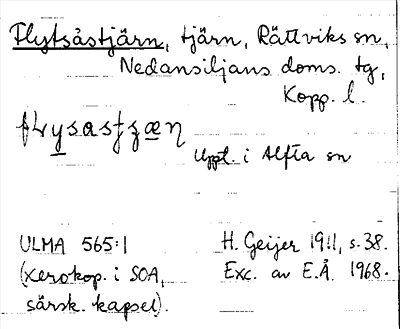 Flytsåstjärn, tjärn, Rättviks sn,
Nedansiljans doms. tg,
Kopp. l.
Uppt. i Alfta sn
ULMA 565:1
(xerokop. i SOA,
särsk. kapsel).
H. Geijer 1911, s. 38.
Exc. av E.Å. 1968.